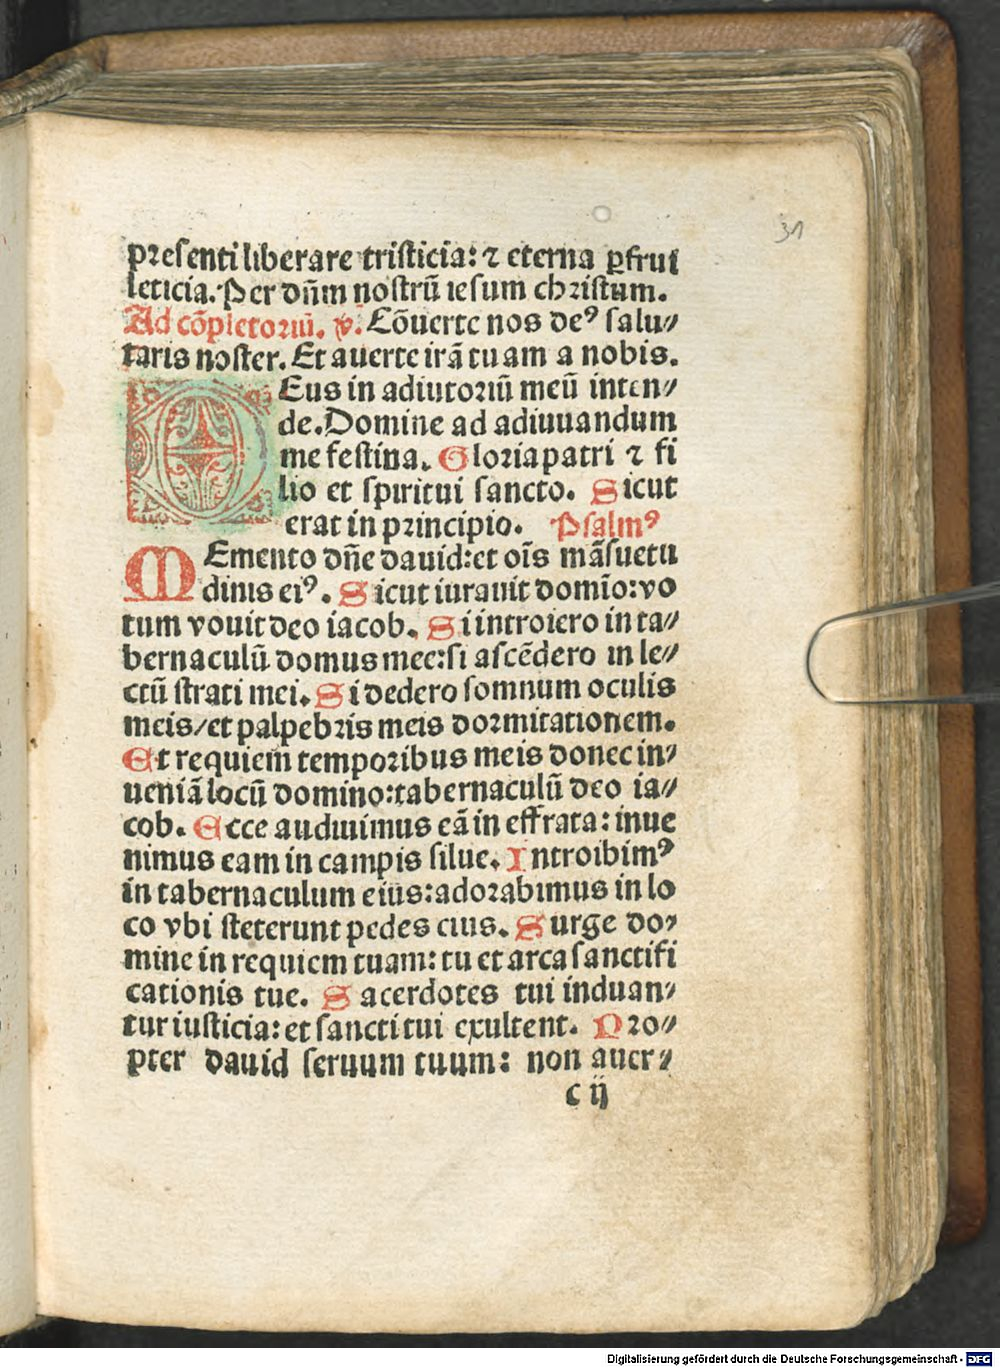 31
presenti liberare tristicia: ⁊ eterna ꝑfrui
leticia. Per dñm nostrũ iesum christum.
Ad cõpletoriũ. ℣. Cõuerte nos deꝰ salu⸗
taris noster. Et auerte irã tuam a nobis.
DEus in adiutoriũ meũ inten⸗
de. Domine ad adiuuandum
me festina. Gloria patri ⁊ fi
lio et spiritui sancto. Sicut
erat in principio. Psalmꝰ
MEmento dñe dauid: et oĩs mãsuetu
dinis eiꝰ. Sicut iurauit domĩo: vo
tum vouit deo iacob. Si introiero in ta⸗
bernaculũ domus mee: si ascẽdero in le⸗
ctũ strati mei. Si dedero somnum oculis
meis/ et palpebris meis dormitationem.
Et requiem temporibus meis donec in⸗
ueniã locũ domino: tabernaculũ deo ia⸗
cob. Ecce audiuimus eã in effrata: inue
nimus eam in campis silue. Introibimꝰ
in tabernaculum eius: adorabimus in lo
co vbi steterunt pedes eius. Surge do⸗
mine in requiem tuam: tu et arca sanctifi
cationis tue. Sacerdotes tui induan⸗
tur iusticia: et sancti tui exultent. Pro⸗
pter dauid seruum tuum: non auer⸗
c ij
Digitalisierung gefördert durch die Deutsche Forschungsgemeinschaft - DFG